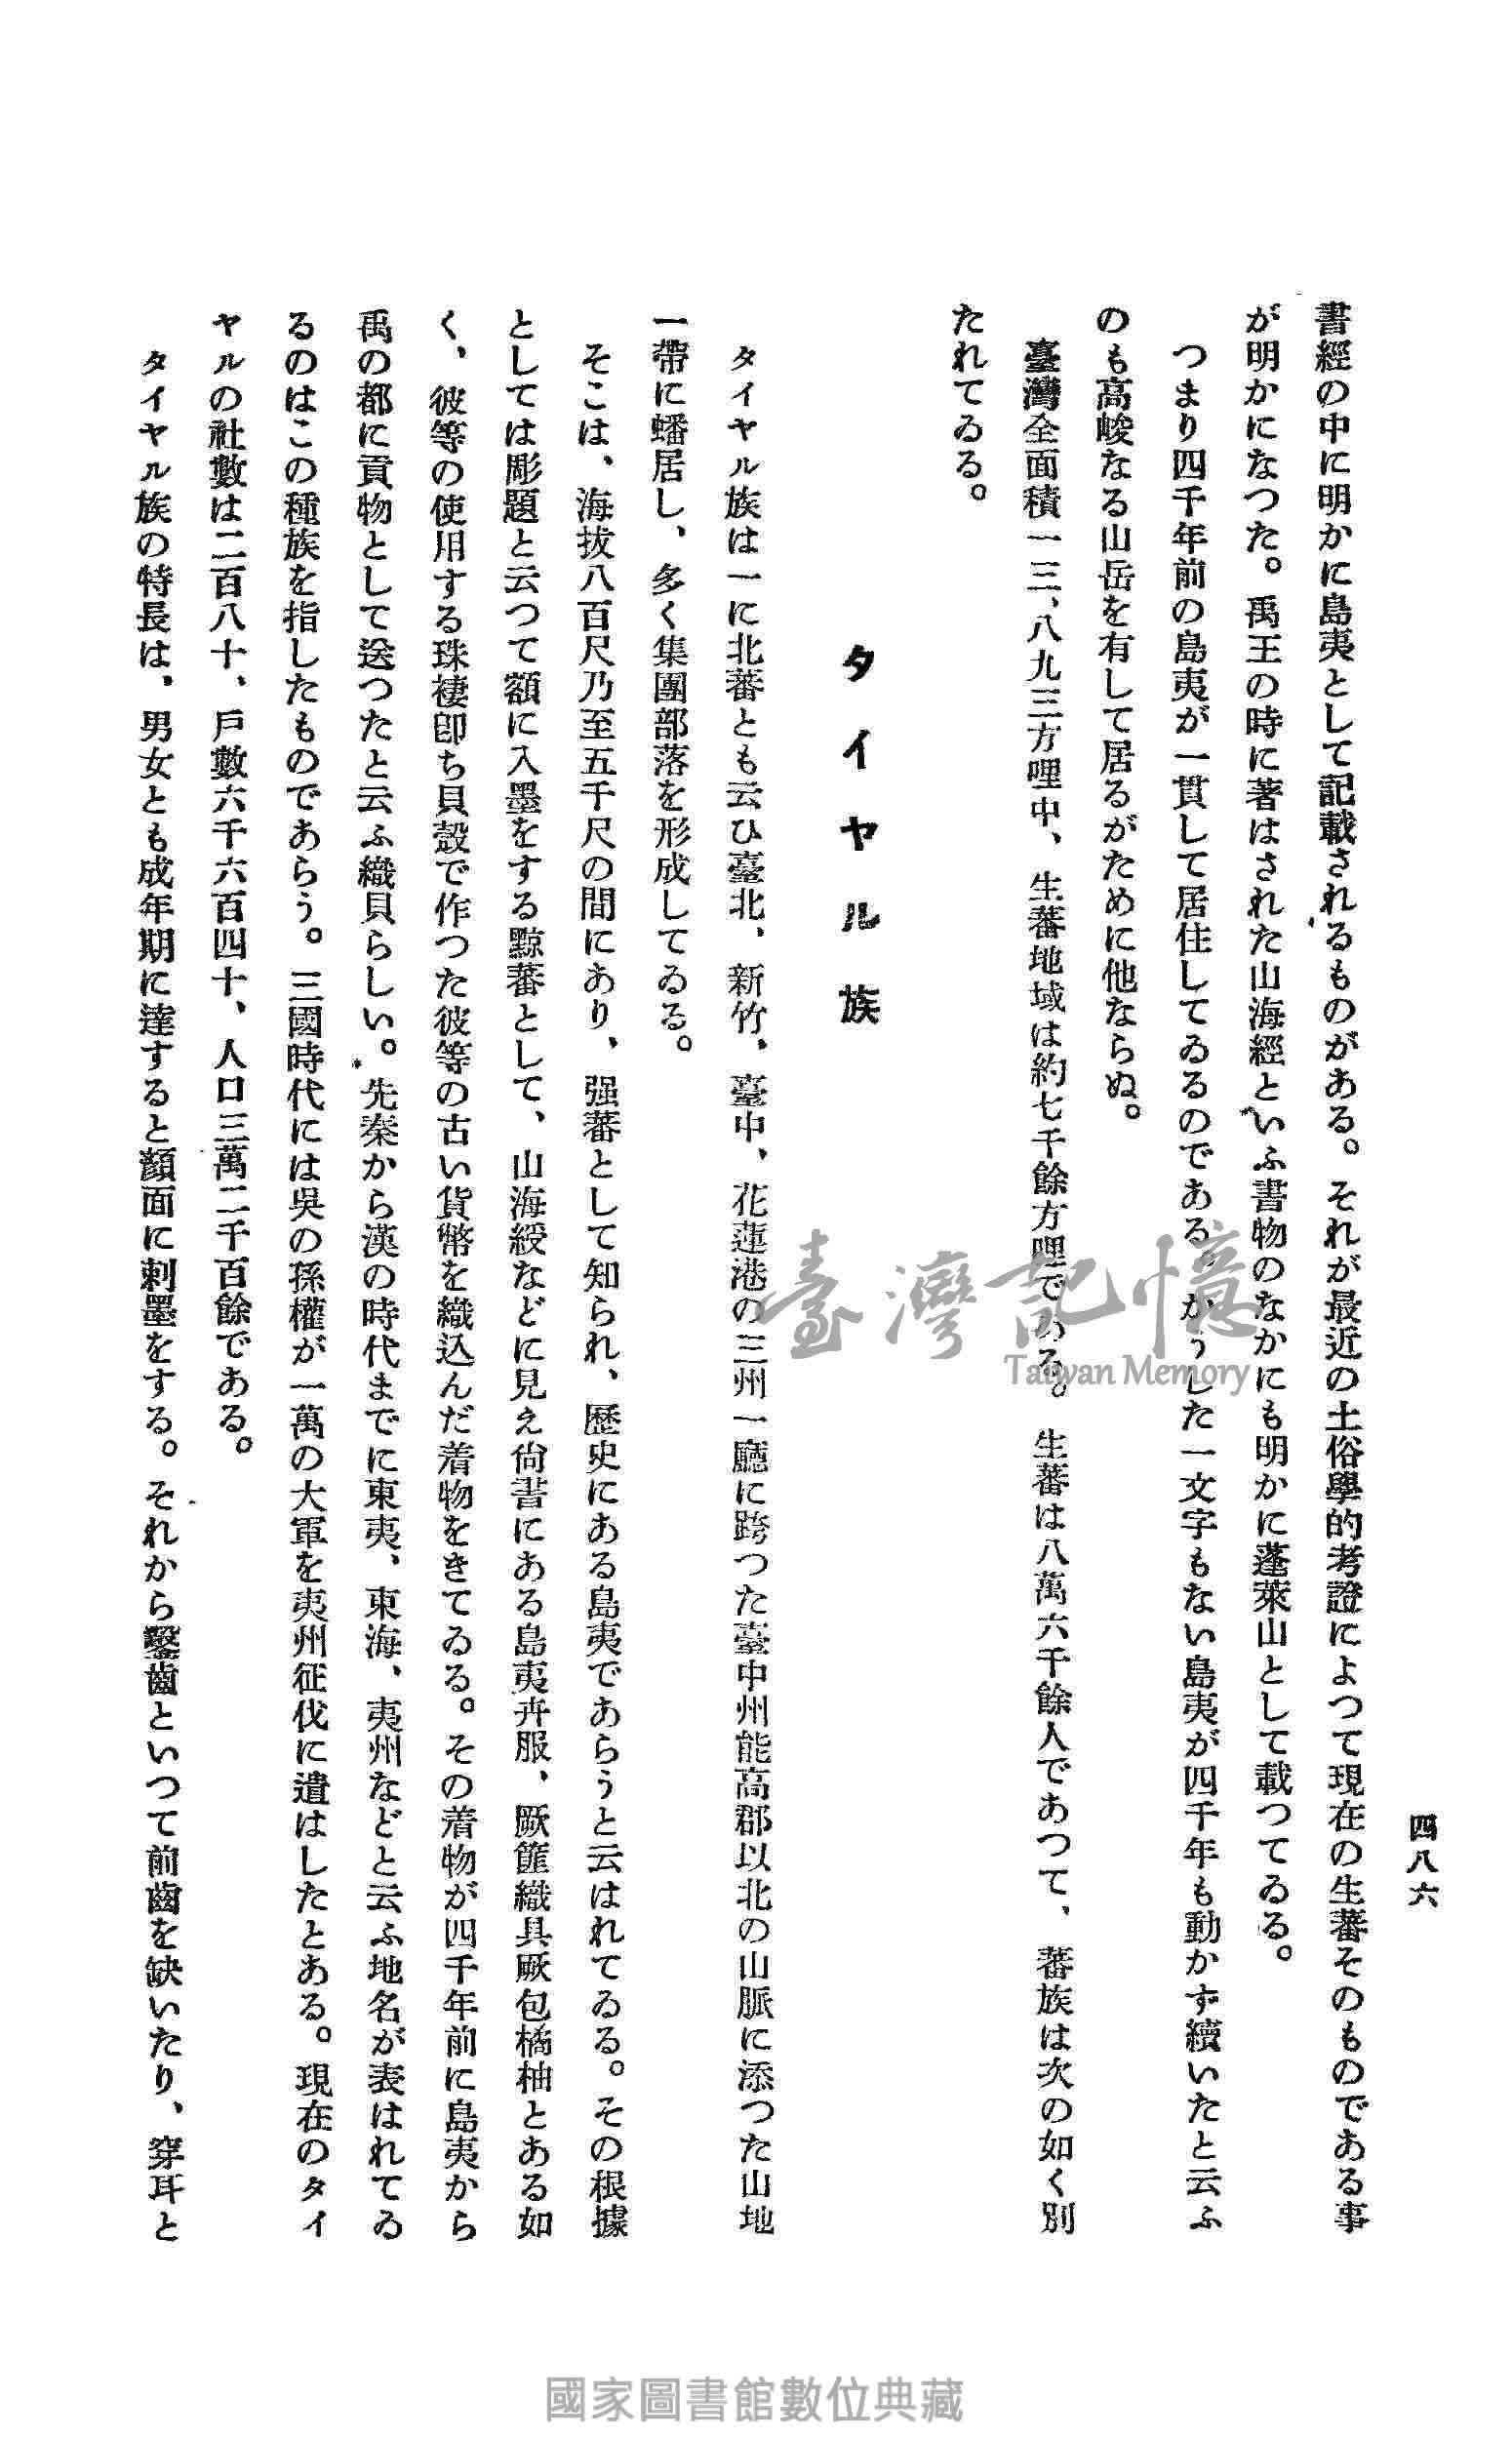 四八六
書經の中に明かに島夷として記載されるものがある。それが最近の土俗學的考證によつて現在の生蕃そのものである事
が明かになつた。禹王の時に著はされた山海經といふ書物のなかにも明かに蓬萊山として載つてゐる。
つまり四千年前の島夷が一貫して居住してゐるのである。かうした一文字もない島夷が四千年も動かず續いたと云ふ
のも高峻なる山岳を有して居るがために他ならぬ。
臺灣全面積一三、八九三方哩中、生蕃地域は約七千餘方哩である。生蕃は八萬六千餘人であつて、蕃族は次の如く別
たれてゐる。
タイヤル族
タイヤル族は一に北蕃とも云ひ臺北、新竹、臺中、花蓮港の三州一廳に跨つた臺中州能高郡以北の山脈に添つた山地
一帶に蟠居し、多く集團部落を形成してゐる。
そこは、海拔八百尺乃至五千尺の間にあり、强蕃として知られ、歷史にある島夷であらうと云はれてゐる。その根據
としては彫題と云つて額に入墨をする黥蕃として、山海經などに見え尙書にある島夷卉服、厥篚織具厥包橘柚とある如
く、彼等の使用する珠褄卽ち貝殼で作つた彼等の古い貨幣を織込んだ着物をきてゐる。その着物が四千年前に島夷から
禹の都に貢物として送つたと云ふ織貝らしい。先秦から漢の時代までに東夷、東海、夷州などと云ふ地名が表はれてゐ
るのはこの種族を指したものであらう。三國時代には吳の孫權が一萬の大軍を夷州征伐に遣はしたとある。現在のタイ
ヤルの社數は二百八十、戶數六千六百四十、人口三萬二千百餘である。
タイヤル族の特長は、男女とも成年期に達すると顏面に刺墨をする。それから鑿齒といつて前齒を缺いたり、穿耳と
臺灣記憶
Taiwan Memory
國家圖書館數位典藏